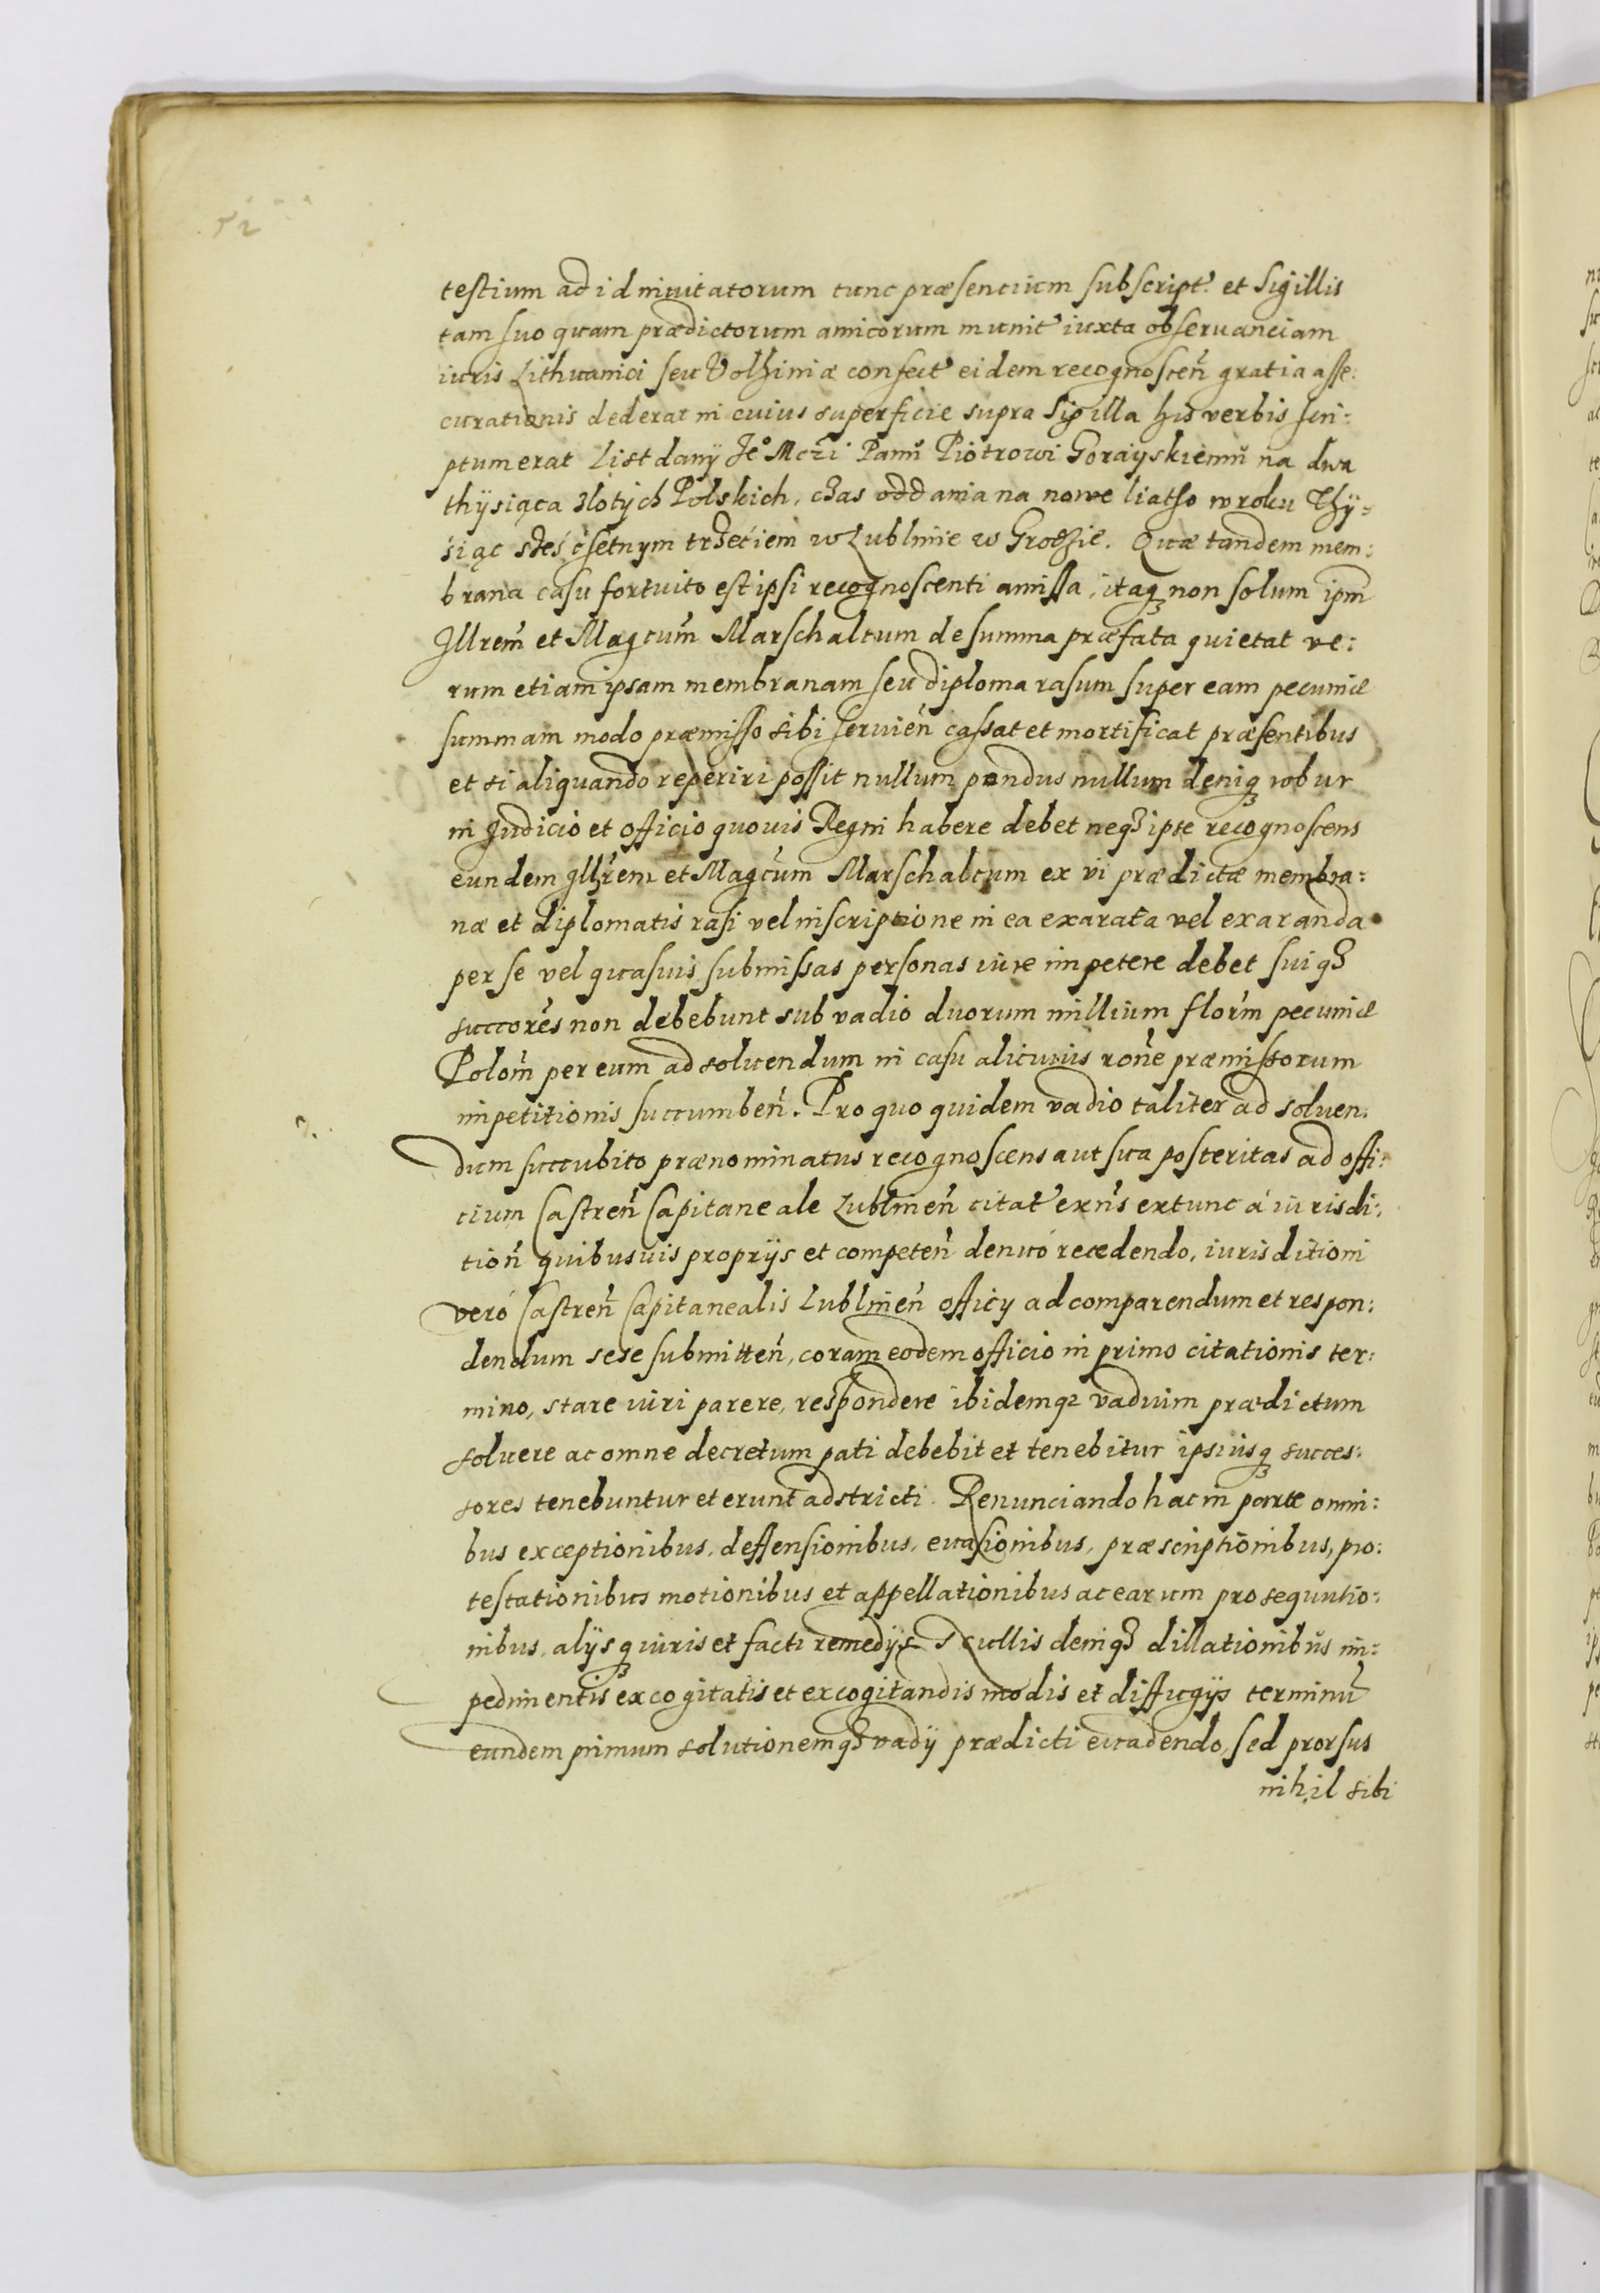 52
testium ad id inuitatorum tunc præsentium subscript: et Sigillis
tam suo quam prædictorum amicorum munit iuxta obseruanciam
iuris Lithuanici seu Volhiniæ confect eidem recognoscen̄ gratia asse:
curationis dederat in cuius superficie supra Sigilla his verbis scri:
ptum erat List dany Je° Mczi Panu Piotrowi Gorayskiemu na dwa
thysiąca zlotych Polskich, czas oddania na nowe liatho w roku Thy=
siąc szesć setnym trzećiem w Lublinie w Grodzie. Quæ tandem mem:
brana casu fortuito est ipsi recognoscenti amissa, itaq; non solum ipm̄
Illrem̄ et Magcum̄ Marschalcum de summa præfata quietat ve:
rum etiam ipsam membranam seu diploma rasum super eam pecuniæ
summam modo præmisso sibi seruien̄ cassat et mortificat præsentibus
et si aliquando reperiri possit nullum pondus nullum deniq; robur
in Judicio et officio quouis Regni habere debet neq; ipse recognoscens
eundem Illrem̄ et Magcum̄ Marschalcum ex vi prædictæ membra:
næ et diplomatis rasi vel inscriptione in ea exarata vel exaranda
per se vel quasuis submissas personas iure impetere debet suiq;
succores̄ non debebunt sub vadio duorum millium florm̄ pecuniæ
Polom̄ per eum ad soluendum in casu alicuius ronē præmissorum
impetitionis succumben̄. Pro quo quidem vadio taliter ad soluen:
dum succubito prænominatus recognoscens aut sua posteritas ad offi:
cium Castren̄ Capitaneale Lublinen̄ citat exns̄ extunc á iurisdi:
tion̄ quibusuis proprijs et competen̄ denuó recedendo, iurisditioni
veró Castren̄ Capitanealis Lublinen̄ officij ad comparendum et respon:
dendum sese submitten̄, coram eodem officio in primo citationis ter:
mino, stare iuri parere, respondere ibidemq; vadium prædictum
soluere ac omne decretum pati debebit et tenebitur ipsiusq; succes:
sores tenebuntur et erunt adstricti. Renunciando hac in parte omni:
bus exceptionibus, deffensionibus, euasionibus, præscriptionibus, pro:
testationibus motionibus et appellationibus ac earum prosequutio:
nibus, alijsq; iuris et facti remedijs ullis deniq; dillationibus im:
pedimentis excogitatis et excogitandis modis et diffugijs terminū
eundem primum solutionemq; vadij prædicti euadendo, sed prorsus
nihil sibi